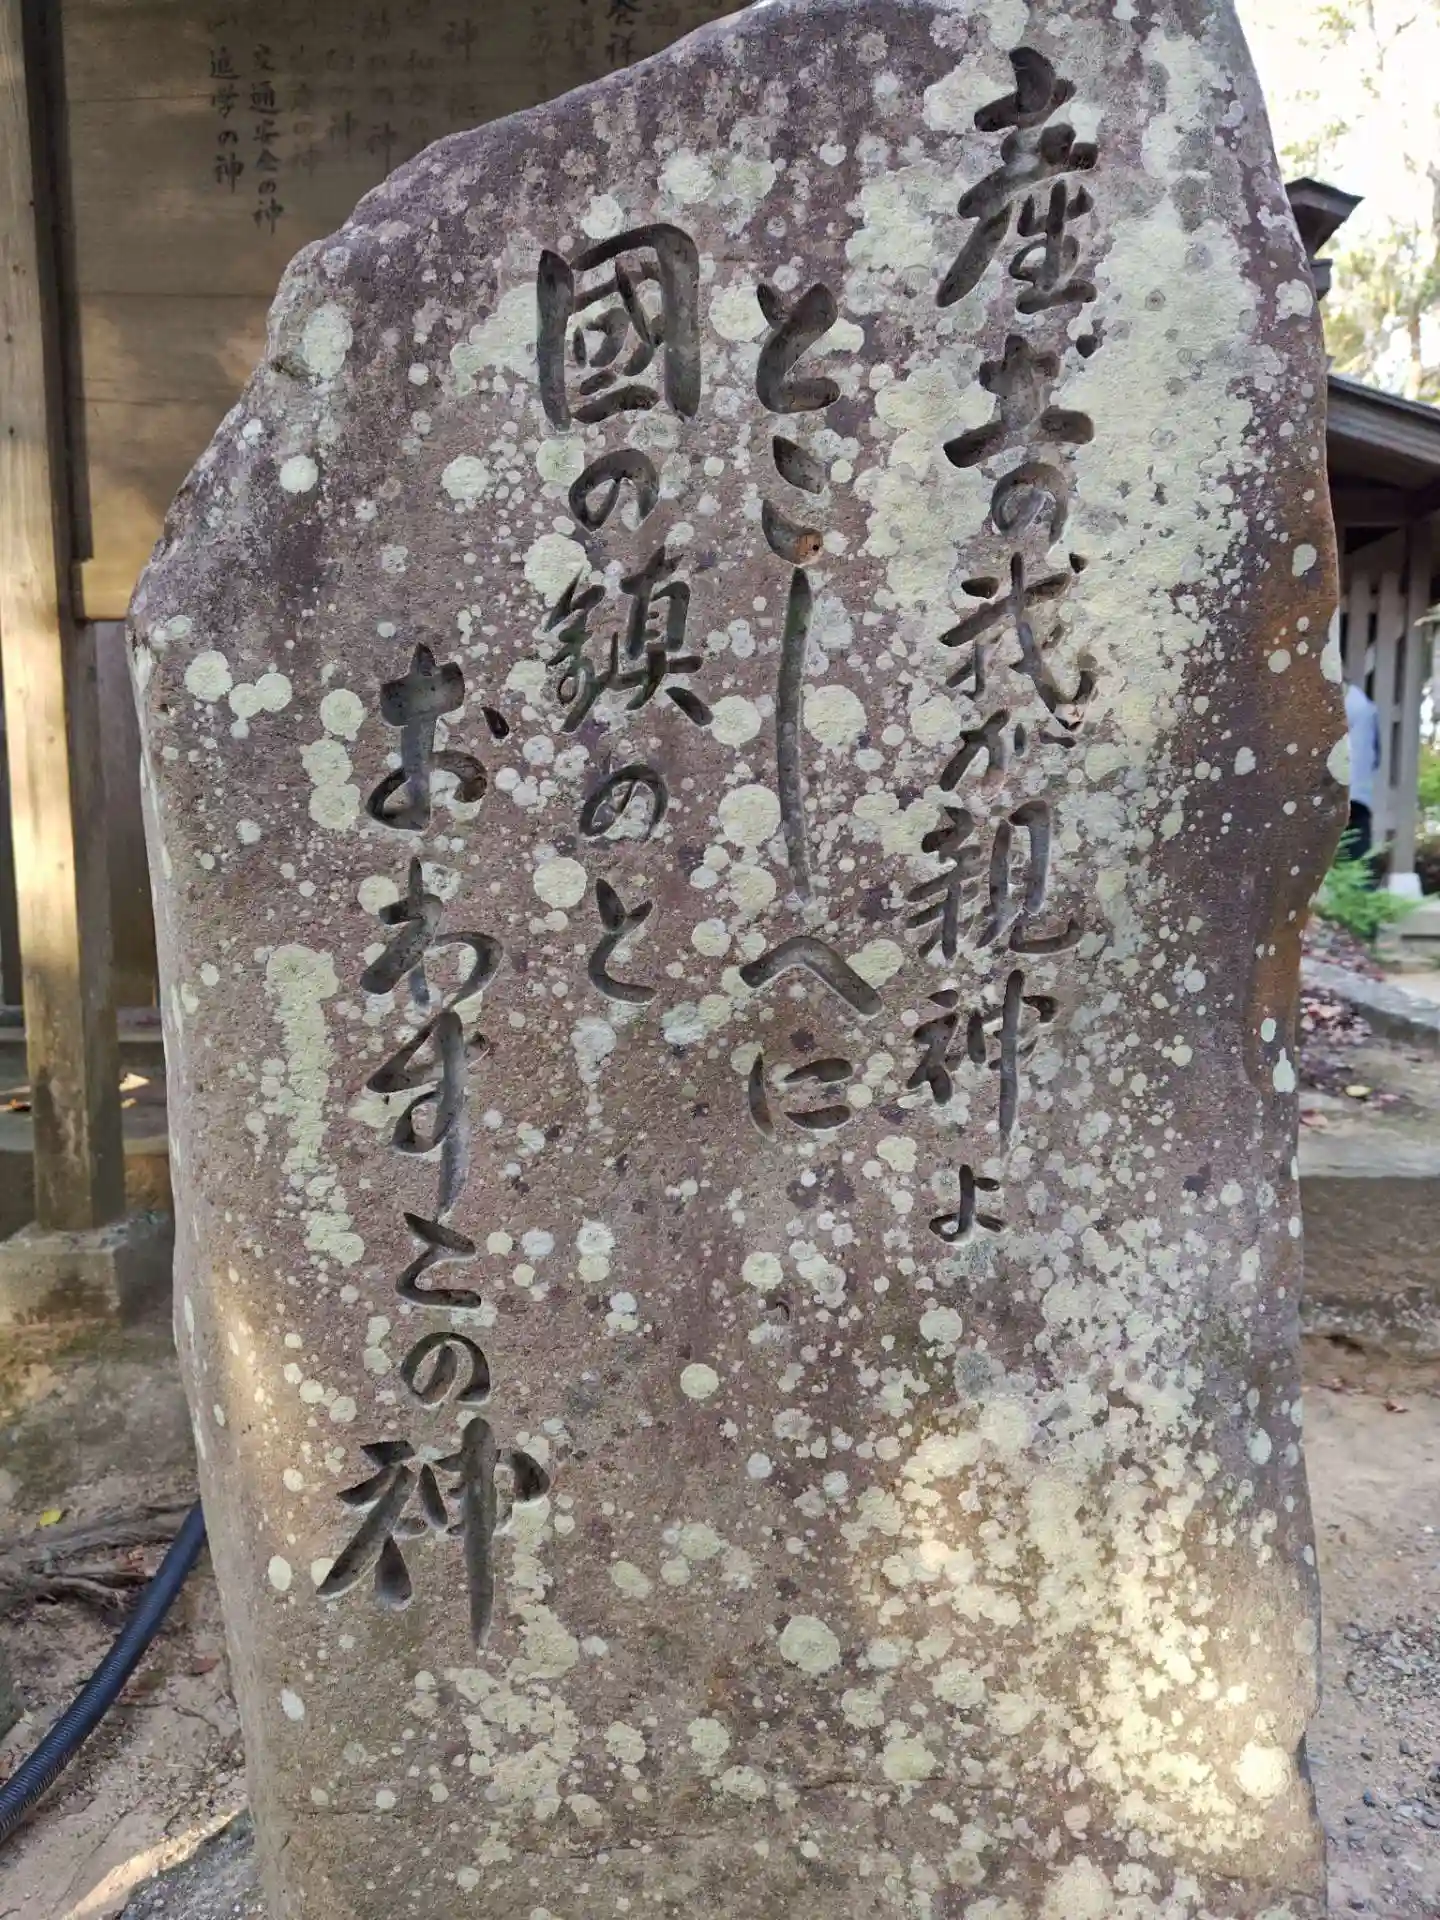 産土の我が親神よ
とこしへに
國の鎮めと
おわすこの神
交通安全の神
進学の神